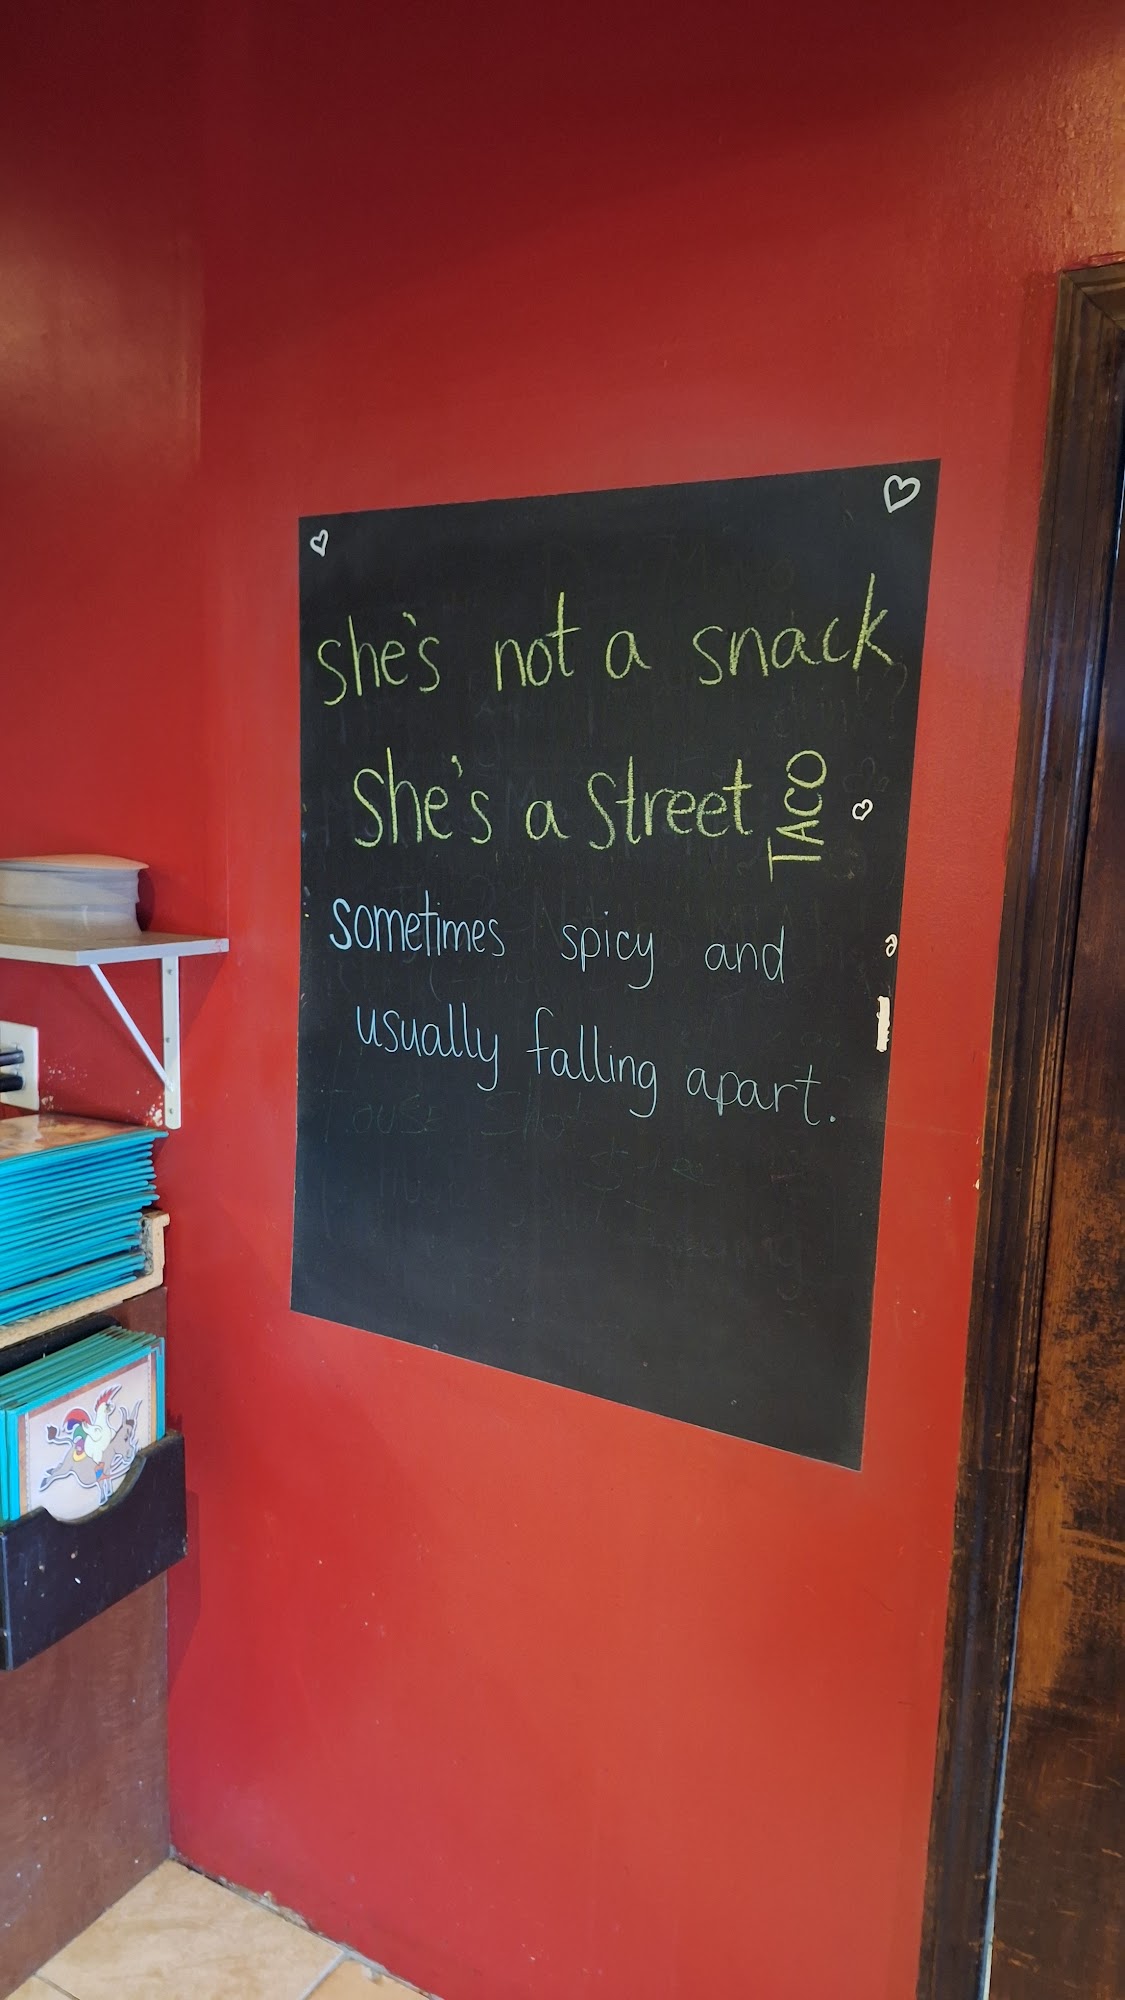 she's not a snack
she's a street TACO
sometimes spicy and
usually falling apart.